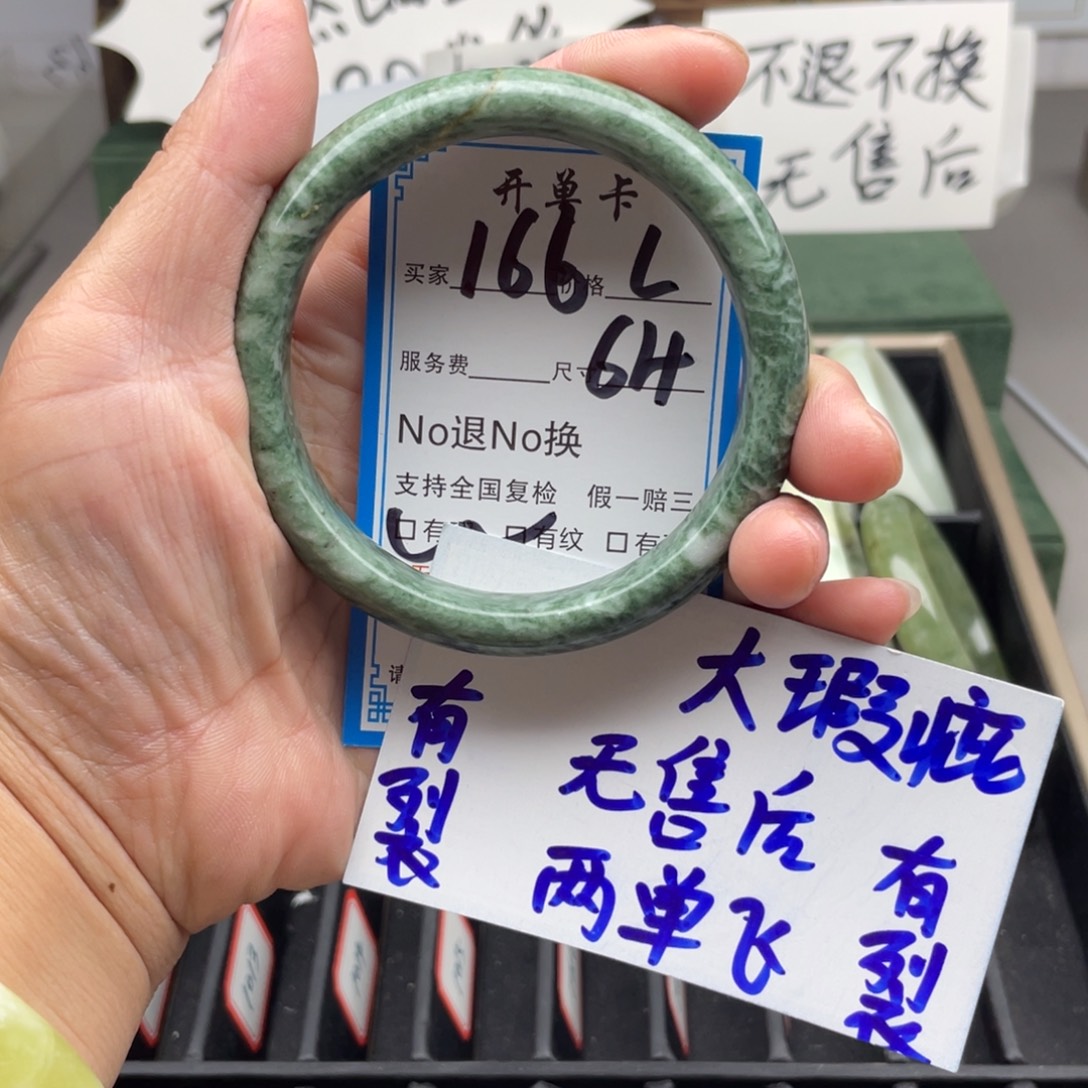 不退不换
无售后
开单卡
买家 166 价格 L
服务费 尺寸 64
No退No换
支持全国复检 假一赔三
口有 口有纹 口有
请
大瑕疵
无售后
两单飞
有裂
有裂